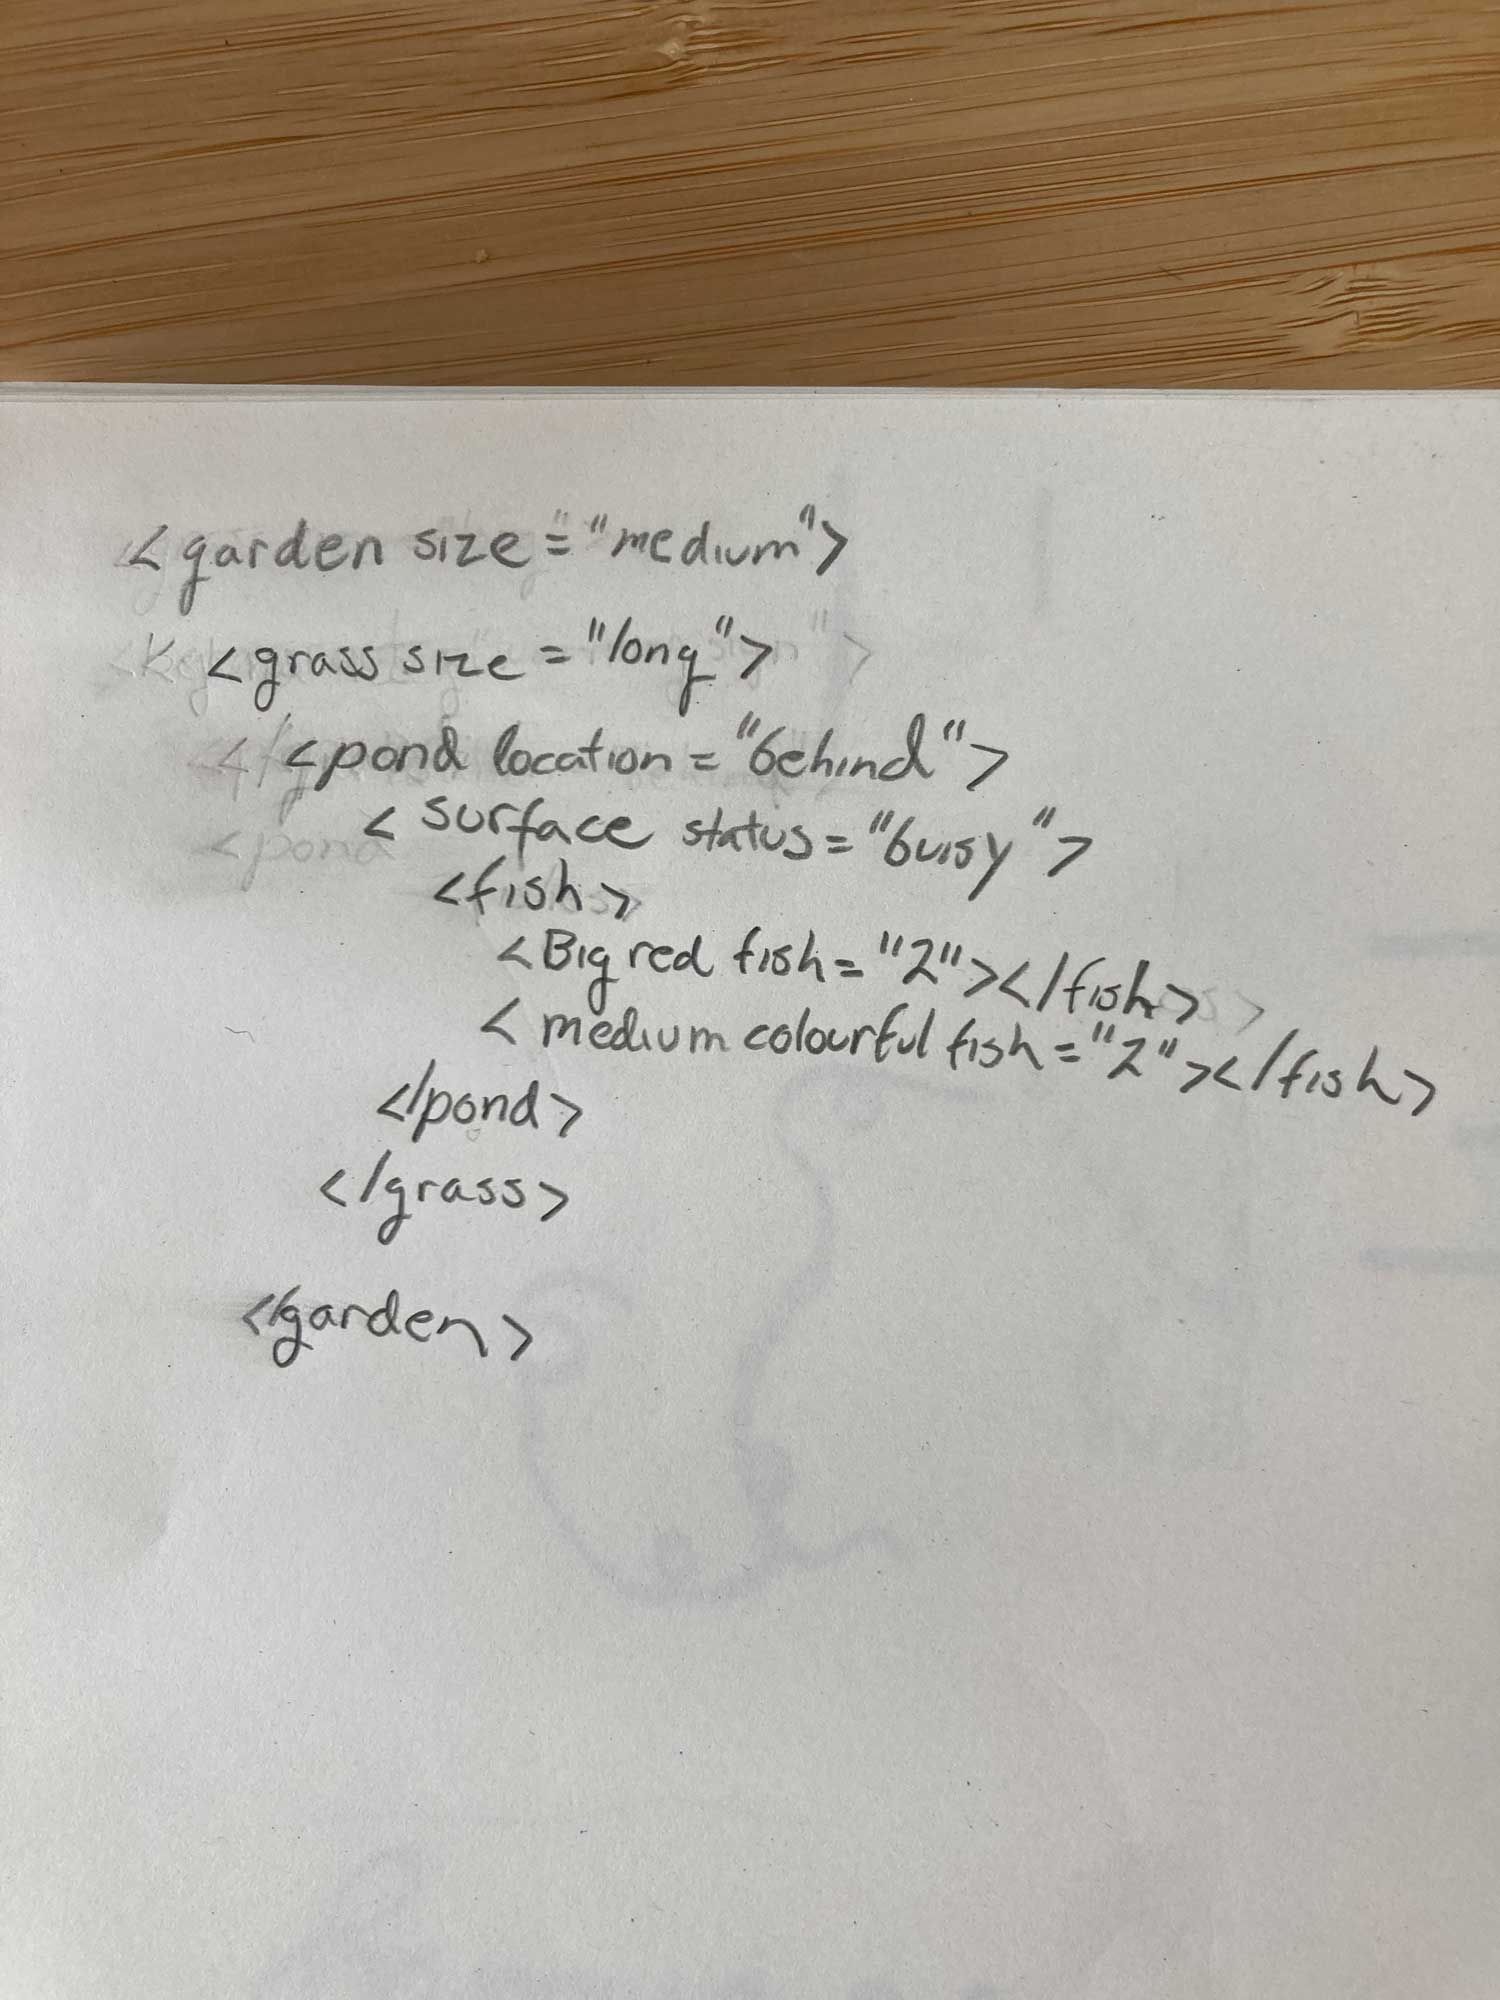 <garden size="medium">
<grass size="long">
<pond location="behind">
<surface status="buisy">
<fish>
<Big red fish="2"></fish>
<medium colourful fish="2"></fish>
</pond>
</grass>
</garden>